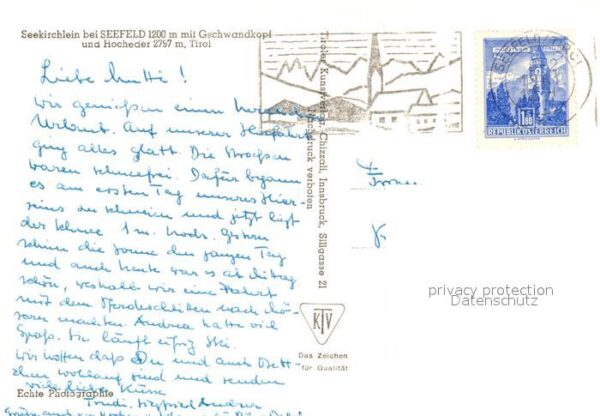 Seekirchlein bei SEEFELD 1200 m mit Gschwandkopf
und Hocheder 2797 m, Tirol
Liebe Mutti!
Wir genießen einen
Urlaub. Auf unserer Herfahrt
ging alles glatt. Die Straßen
waren schneefrei. Dafür begann
es am ersten Tag unseres Hier-
seins zu schneien und jetzt liegt
der Schnee 1 m. hoch. Gestern
schien die Sonne den ganzen Tag
und auch heute war es ab Mittag
schön, weshalb wir eine Fahrt
mit dem Pferdeschlitten nach
machten. Andrea hatte viel
Spaß. Sie läuft eifrig Ski.
Wir hoffen daß Du und auch
wohlauf sind und senden
viele liebe Küsse
Trudi, Siegfried Andrea
Echte Photographie
Tiroler Kunstverlag Chizzali, Innsbruck, Sillgasse 21
Nachdruck verboten
KTV
Das Zeichen
für Qualität
SEEFELD TIROL
1.80
REPUBLIK ÖSTERREICH
privacy protection
Datenschutz